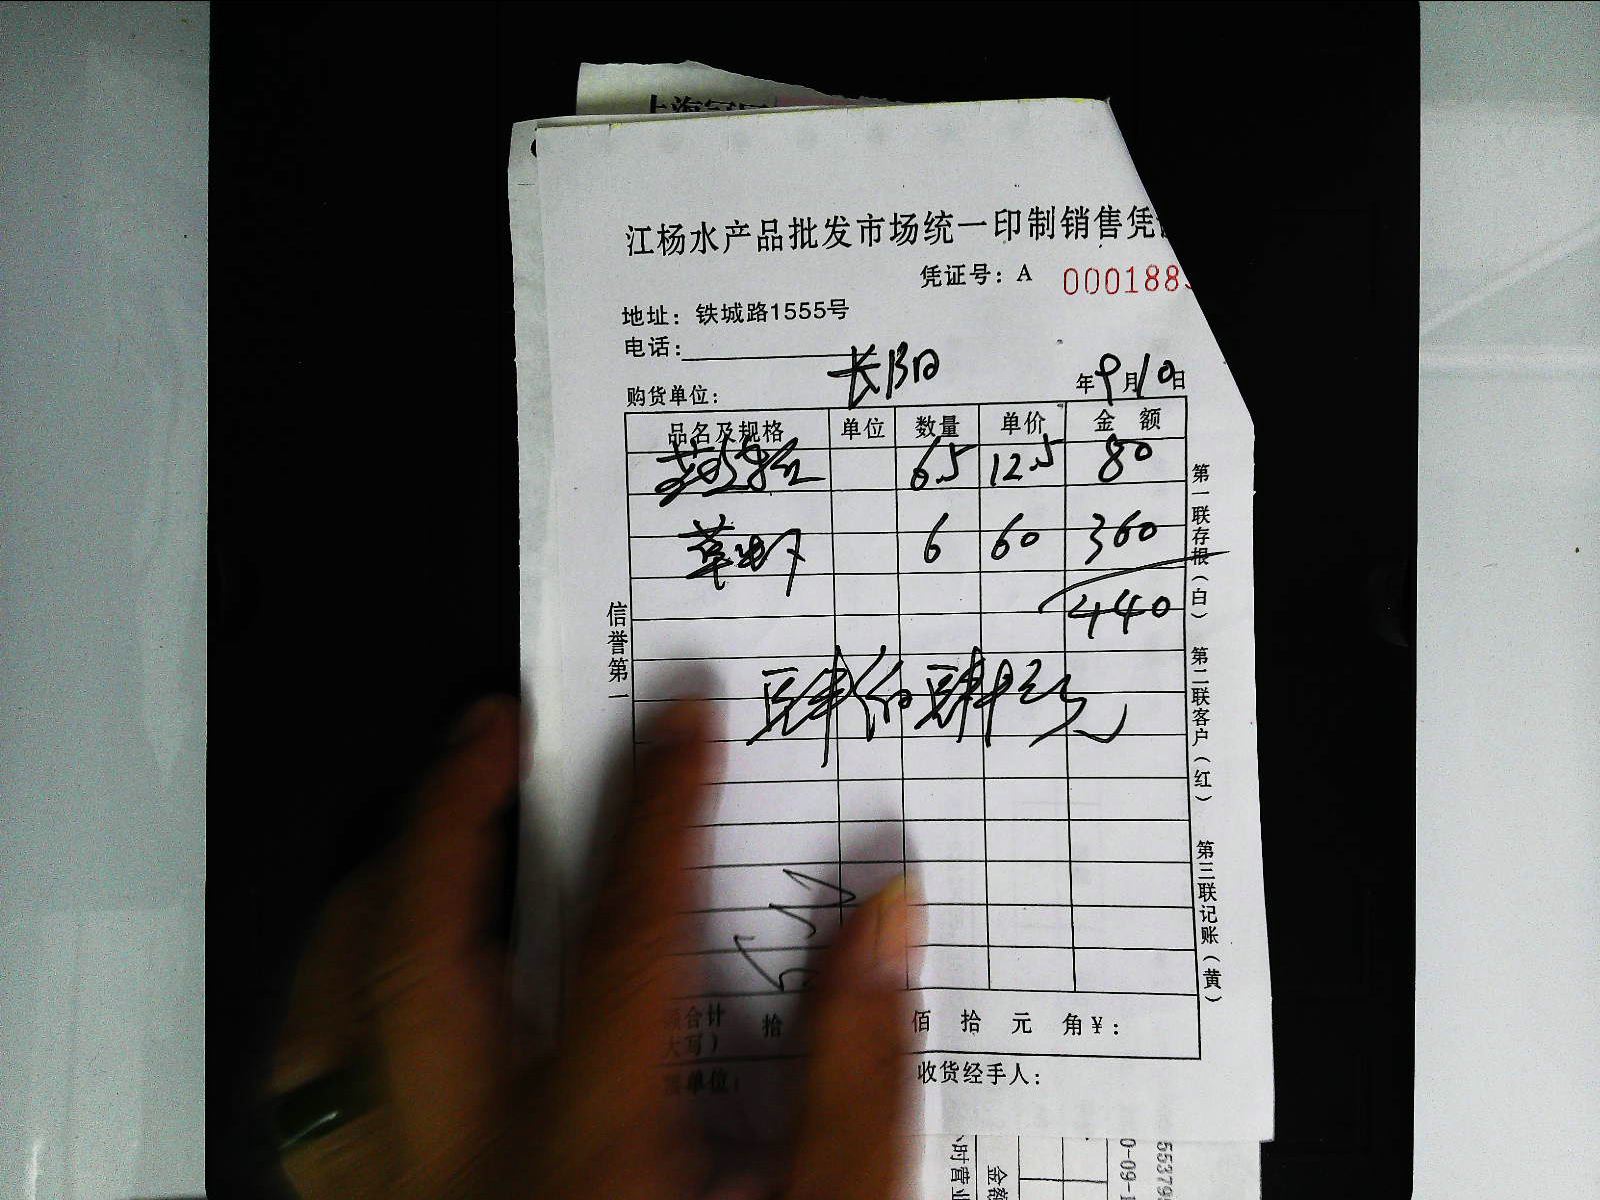 上海
江杨水产品批发市场统一印制销售凭
凭证号：A 000188
地址：铁城路1555号
电话：
购货单位： 长阳 年9月10日
品名及规格 单位 数量 单价 金额
6.5 12.5 80
草虾 6 60 360
440
肆佰肆拾元
信誉第一
第一联存根（白） 第二联客户（红） 第三联记账（黄）
合计 拾 佰 拾 元 角￥：
大写）
单位：
收货经手人：
时营业
金额
0-09-1
55379